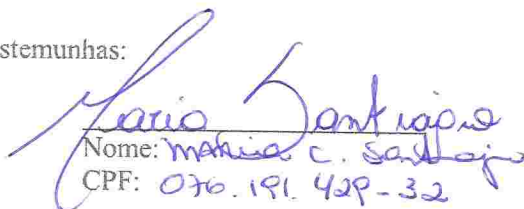 stemunhas:
Maria Santiago
Nome: Maria C. Santiago
CPF: 076.191.429-32